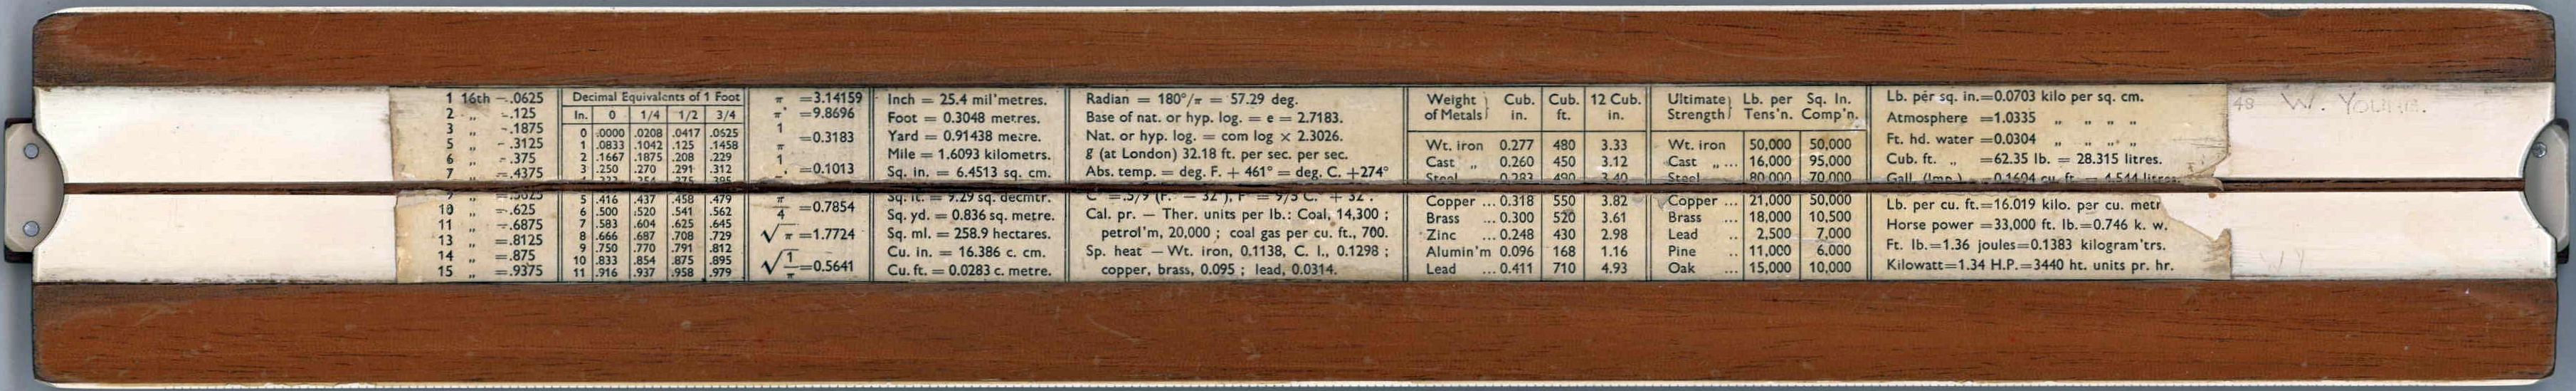 1 16th =.0625
2 „ =.125
3 „ =.1875
5 „ =.3125
6 „ =.375
7 „ =.4375
9 „ =.5625
10 „ =.625
11 „ =.6875
13 „ =.8125
14 „ =.875
15 „ =.9375
Decimal Equivalents of 1 Foot
In. 0 1/4 1/2 3/4
0 .0000 .0208 .0417 .0625
1 .0833 .1042 .125 .1458
2 .1667 .1875 .208 .229
3 .250 .270 .291 .312
5 .416 .437 .458 .479
6 .500 .520 .541 .562
7 .583 .604 .625 .645
8 .666 .687 .708 .729
9 .750 .770 .791 .812
10 .833 .854 .875 .895
11 .916 .937 .958 .979
π =3.14159
π² =9.8696
1/π =0.3183
1 =0.1013
π/4 =0.7854
√π =1.7724
√1/π =0.5641
Inch = 25.4 mil'metres.
Foot = 0.3048 metres.
Yard = 0.91438 metre.
Mile = 1.6093 kilometrs.
Sq. in. = 6.4513 sq. cm.
Sq. ft. = 9.29 sq. decmtr.
Sq. yd. = 0.836 sq. metre.
Sq. ml. = 258.9 hectares.
Cu. in. = 16.386 c. cm.
Cu. ft. = 0.0283 c. metre.
Radian = 180°/π = 57.29 deg.
Base of nat. or hyp. log. = e = 2.7183.
Nat. or hyp. log. = com log × 2.3026.
g (at London) 32.18 ft. per sec. per sec.
Abs. temp. = deg. F. + 461° = deg. C. +274°
C° = .5/9 (F.° − 32°), F° = 9/5 C.° + 32°.
Cal. pr. — Ther. units per lb.: Coal, 14,300 ;
petrol'm, 20,000 ; coal gas per cu. ft., 700.
Sp. heat — Wt. iron, 0.1138, C. I., 0.1298 ;
copper, brass, 0.095 ; lead, 0.0314.
Weight of Metals } Cub. in. Cub. ft. 12 Cub. in.
Wt. iron 0.277 480 3.33
Cast „ 0.260 450 3.12
Steel 0.283 490 3.40
Copper ... 0.318 550 3.82
Brass ... 0.300 520 3.61
Zinc ... 0.248 430 2.98
Alumin'm 0.096 168 1.16
Lead ... 0.411 710 4.93
Ultimate Strength } Lb. per Sq. In.
Tens'n. Comp'n.
Wt. iron 50,000 50,000
Cast „ ... 16,000 95,000
Steel ... 80,000 70,000
Copper ... 21,000 50,000
Brass ... 18,000 10,500
Lead .. 2,500 7,000
Pine .. 11,000 6,000
Oak ... 15,000 10,000
Lb. per sq. in.=0.0703 kilo per sq. cm.
Atmosphere =1.0335 „ „ „ „
Ft. hd. water =0.0304 „ „ „ „
Cub. ft. „ =62.35 lb. = 28.315 litres.
Gall. (Imp.) =0.1604 cu. ft. = 4.544 litres.
Lb. per cu. ft.=16.019 kilo. per cu. metr
Horse power =33,000 ft. lb.=0.746 k. w.
Ft. lb.=1.36 joules=0.1383 kilogram'trs.
Kilowatt=1.34 H.P.=3440 ht. units pr. hr.
48 W. YOUNG.
W.Y